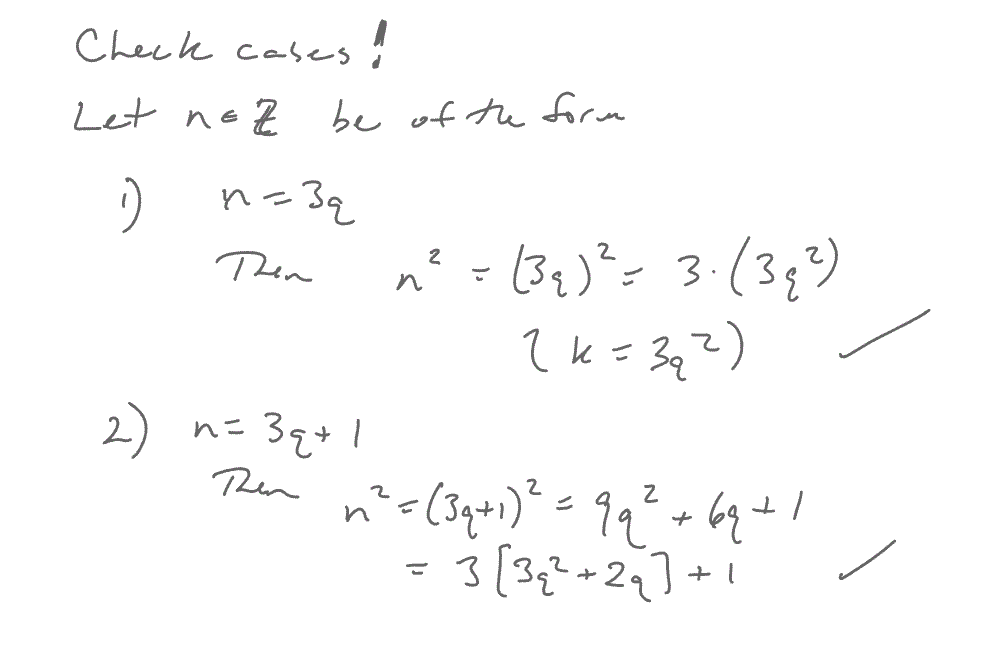 Check cases!
Let n∈ℤ be of the form
1) n = 3q
Then n² = (3q)² = 3·(3q²)
(k = 3q²) ✓
2) n = 3q + 1
Then n² = (3q+1)² = 9q² + 6q + 1
= 3[3q² + 2q] + 1 ✓